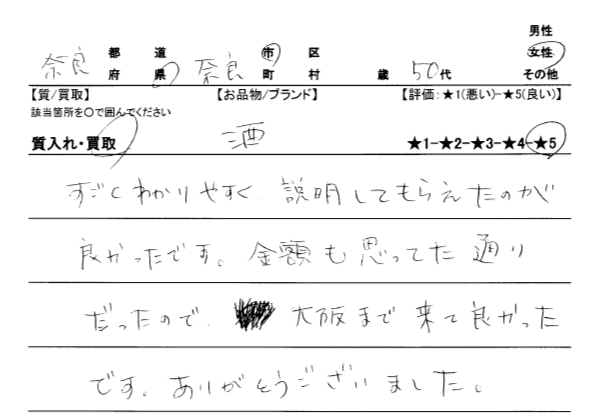 男性
奈良 都 道 奈良 市 区 女性
府 県 町 村 歳 50代 その他
【質/買取】 【お品物/ブランド】 【評価:★1(悪い)-★5(良い)】
該当箇所を〇で囲んでください
質入れ・買取 酒 ★1-★2-★3-★4-★5
すごくわかりやすく、説明してもらえたのが
良かったです。金額も思ってた通り
だったので、大阪まで来て良かった
です。ありがとうございました。